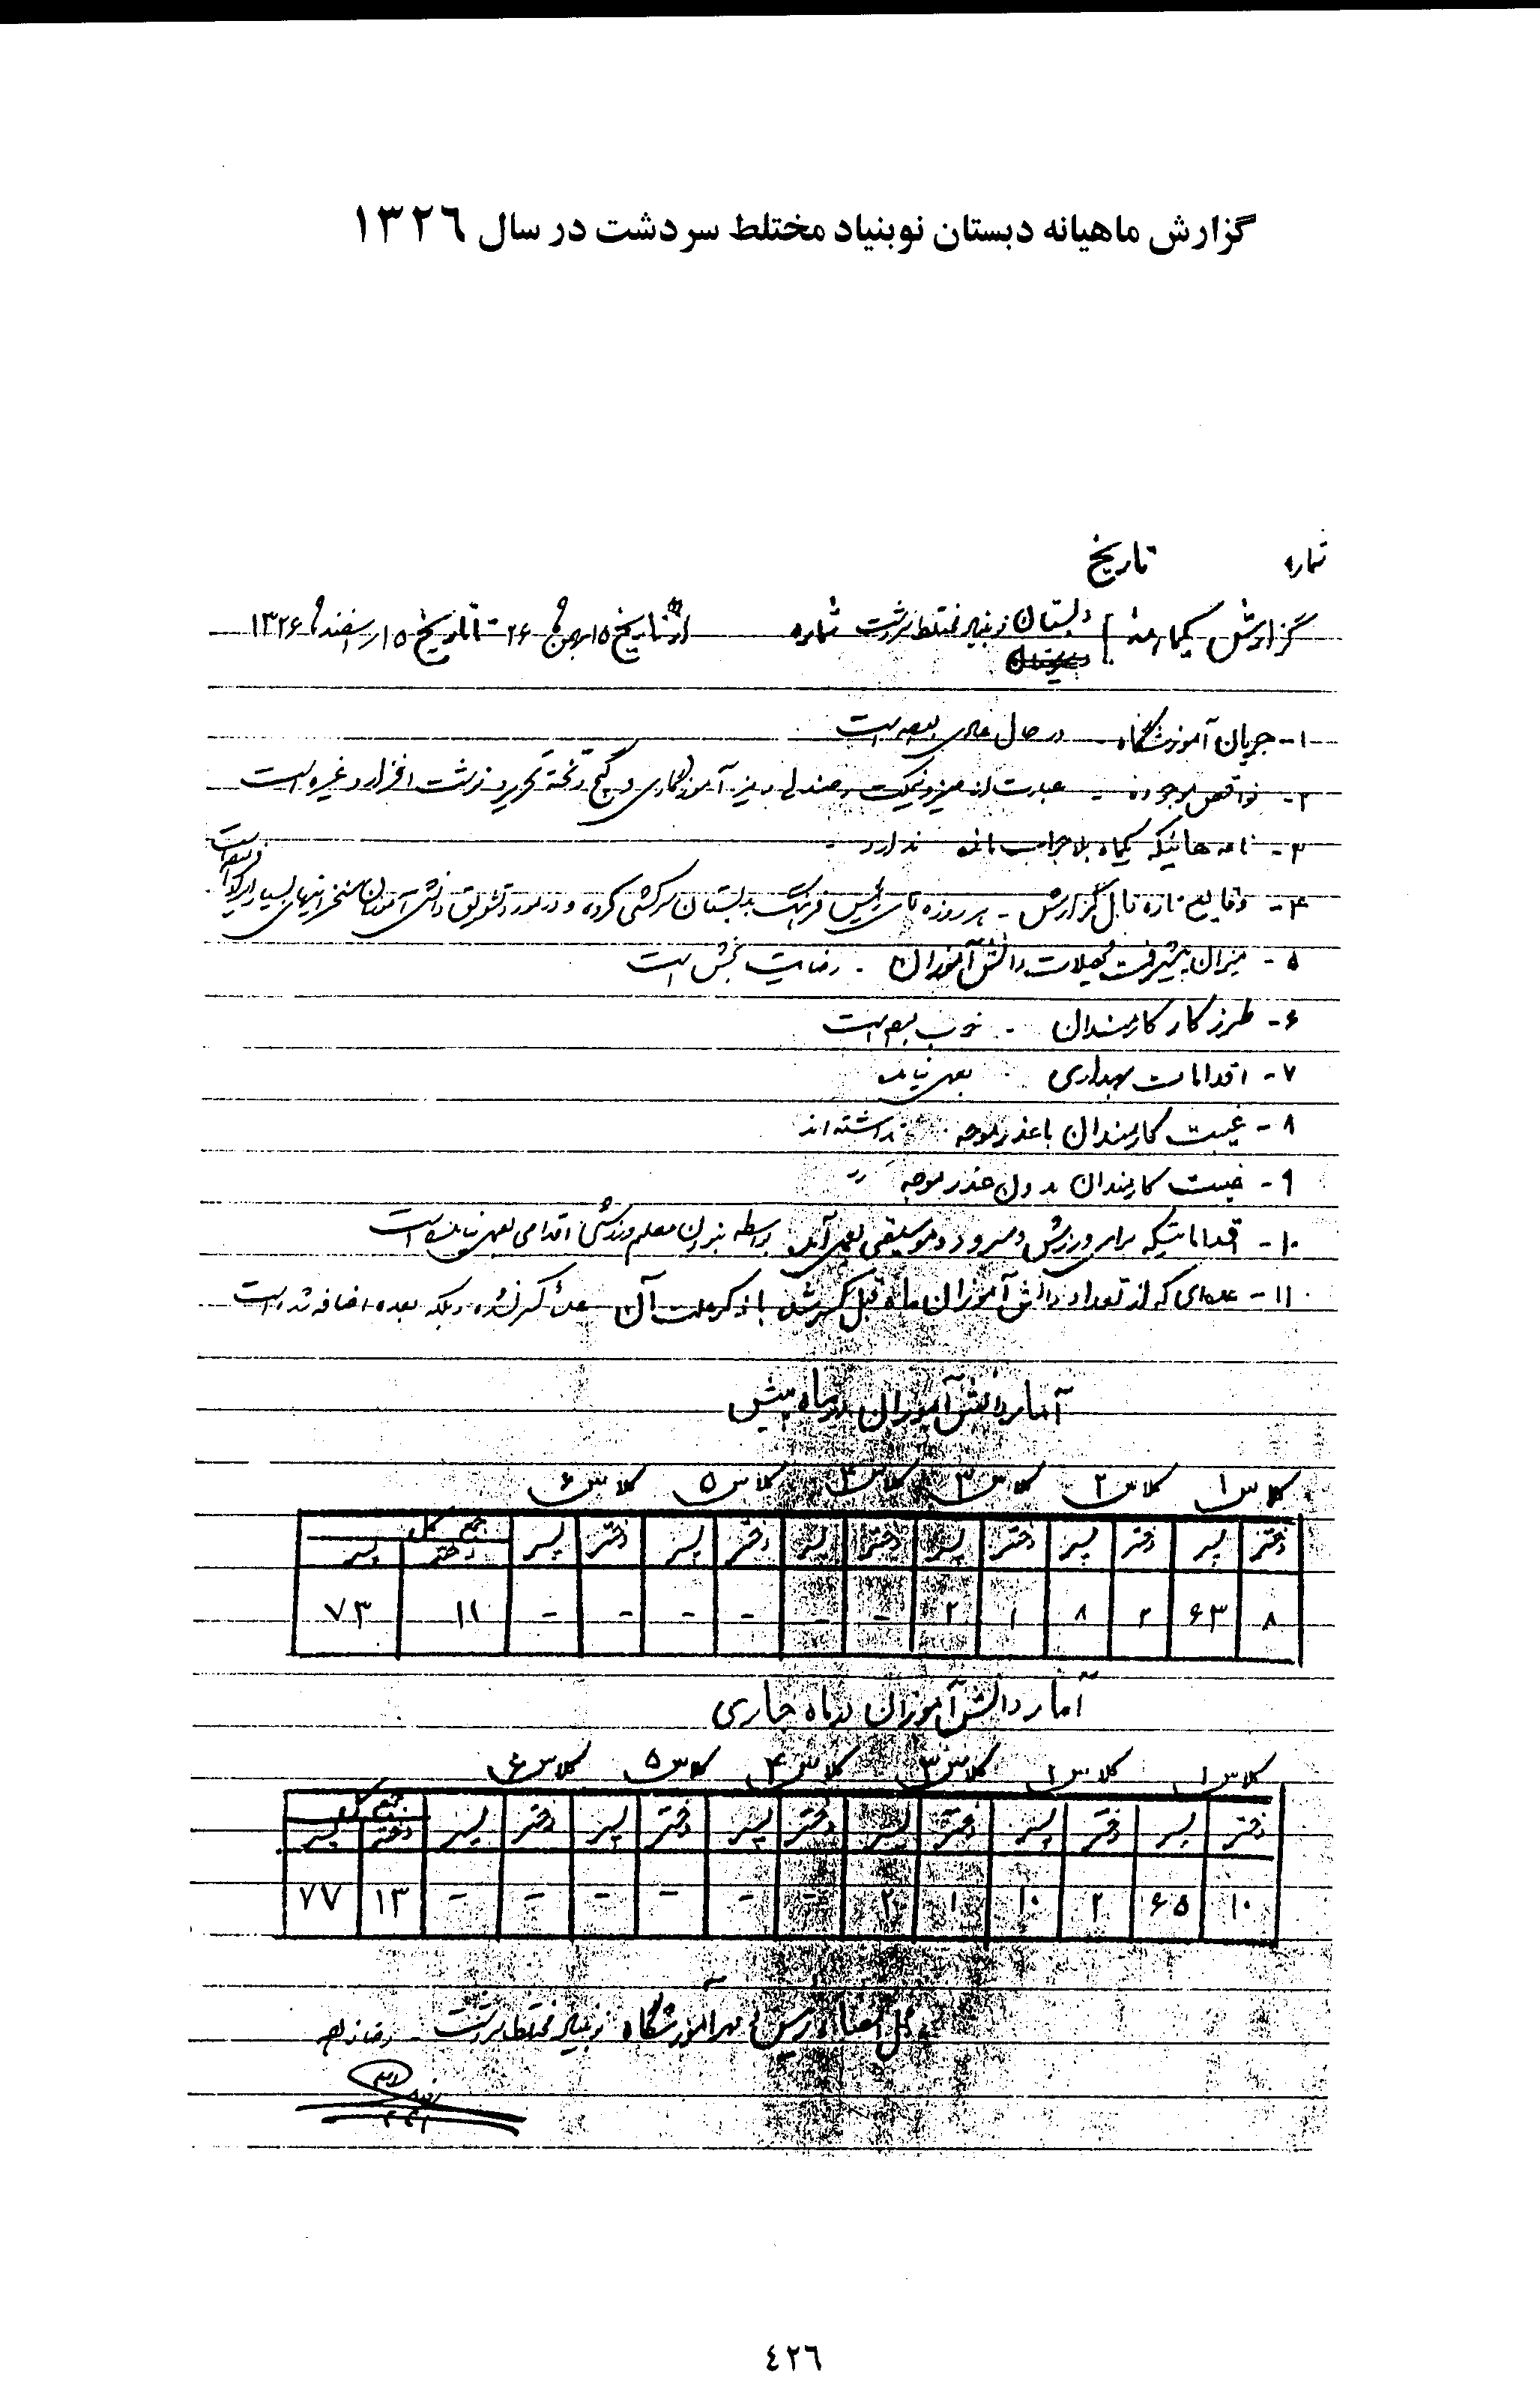 گزارش ماهیانه دبستان نوبنیاد مختلط سردشت در سال ۱۳۲٦
شماره
تاریخ
گزارش یکماهه دبستان نوبنیاد مختلط سردشت شماره از تاریخ ۱۵ بهمن ۲۶ تا تاریخ ۱۵ اسفند ۱۳۲۶
دبیرستان
۱- جریان آموزشگاه - در حال عادی بوده است
۲- نواقص موجوده - عبارت از میز و نیمکت و صندلی و میز آموزگاری و گچ و تخته تحریر و نوشت افزار و غیره است
۳- نامه هائیکه یکماه بلاجواب مانده ندارد -
۴- وقایع تازه قابل گزارش - هر روزه آقای رئیس فرهنگ بدبستان سرکشی کرده و در مورد تشویق دانش آموزان سخنرانیهای بسیار ایراد فرموده است
۵- میزان پیشرفت تحصیلات دانش آموزان - رضایت بخش است
۶- طرز کار کارمندان - خوب بوده است
۷- اقدامات بهداری - بعمل نیامده
۸- غیبت کارمندان با عذر موجه - نداشته اند
۹- غیبت کارمندان بدون عذر موجه 〃
۱۰- اقداماتیکه برای ورزش و سرود و موسیقی بعمل آمده بواسطه نبودن معلم ورزش اقدامی بعمل نیامده است
۱۱- عده‌ای که از تعداد دانش آموزان ماه قبل کسر شده با ذکر علت آن عده کسر نشده و بلکه بعده اضافه شده است
آمار دانش آموزان در ماه پیش
کلاس ۱ کلاس ۲ کلاس ۳ کلاس ۴ کلاس ۵ کلاس ۶
دختر پسر دختر پسر دختر پسر دختر پسر دختر پسر دختر پسر جمع کل
دختر پسر
۸ ۶۳ ۲ ۸ ۱ ۲ - - - - - - ۱۱ ۷۳
آمار دانش آموزان در ماه جاری
کلاس ۱ کلاس ۲ کلاس ۳ کلاس ۴ کلاس ۵ کلاس ۶
دختر پسر دختر پسر دختر پسر دختر پسر دختر پسر دختر پسر جمع کل
دختر پسر
۱۰ ۶۵ ۲ ۱۰ ۱ ۲ - - - - - - ۱۳ ۷۷
محل امضاء رئیس و مهر آموزشگاه نوبنیاد مختلط سردشت - رضا
٤۲٦